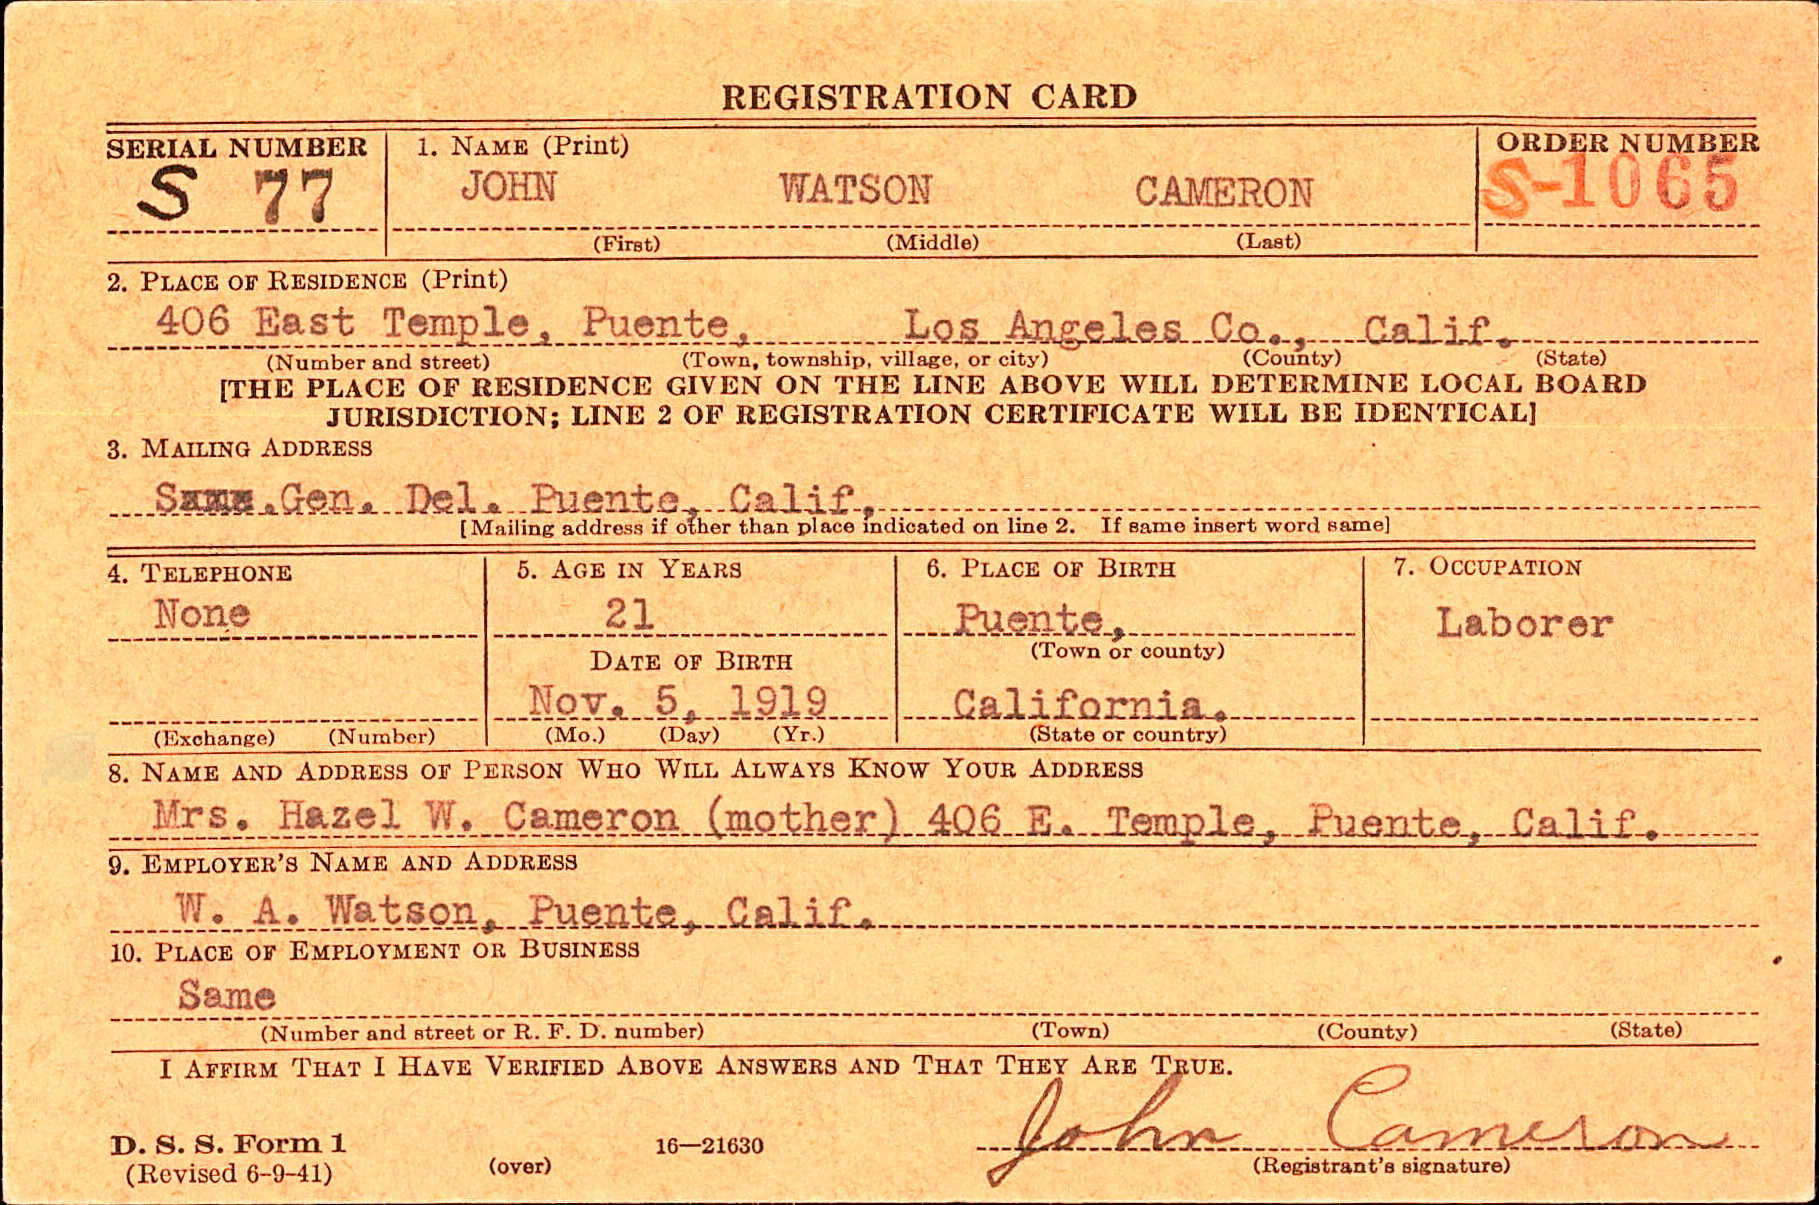 REGISTRATION CARD
SERIAL NUMBER 1. NAME (Print) ORDER NUMBER
S 77 JOHN WATSON CAMERON S-1065
(First) (Middle) (Last)
2. PLACE OF RESIDENCE (Print)
406 East Temple, Puente, Los Angeles Co., Calif.
(Number and street) (Town, township, village, or city) (County) (State)
[THE PLACE OF RESIDENCE GIVEN ON THE LINE ABOVE WILL DETERMINE LOCAL BOARD
JURISDICTION; LINE 2 OF REGISTRATION CERTIFICATE WILL BE IDENTICAL]
3. MAILING ADDRESS
Gen. Del. Puente, Calif,
[Mailing address if other than place indicated on line 2. If same insert word same]
4. TELEPHONE 5. AGE IN YEARS 6. PLACE OF BIRTH 7. OCCUPATION
None 21 Puente, Laborer
DATE OF BIRTH (Town or county)
Nov. 5, 1919 California.
(Exchange) (Number) (Mo.) (Day) (Yr.) (State or country)
8. NAME AND ADDRESS OF PERSON WHO WILL ALWAYS KNOW YOUR ADDRESS
Mrs. Hazel W. Cameron (mother) 406 E. Temple, Puente, Calif.
9. EMPLOYER'S NAME AND ADDRESS
W. A. Watson, Puente, Calif.
10. PLACE OF EMPLOYMENT OR BUSINESS
Same
(Number and street or R. F. D. number) (Town) (County) (State)
I AFFIRM THAT I HAVE VERIFIED ABOVE ANSWERS AND THAT THEY ARE TRUE.
John Cameron
D. S. S. Form 1 16—21630
(Revised 6-9-41) (over) (Registrant's signature)